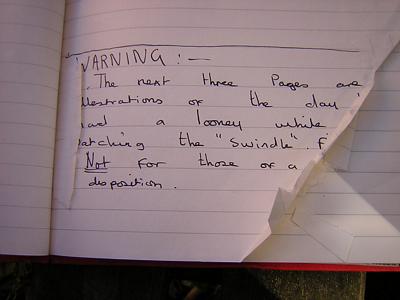 WARNING :—
The next three Pages are
llestrations of the day
had a looney while
atching the "Swindle". F
Not for those of a
disposition.